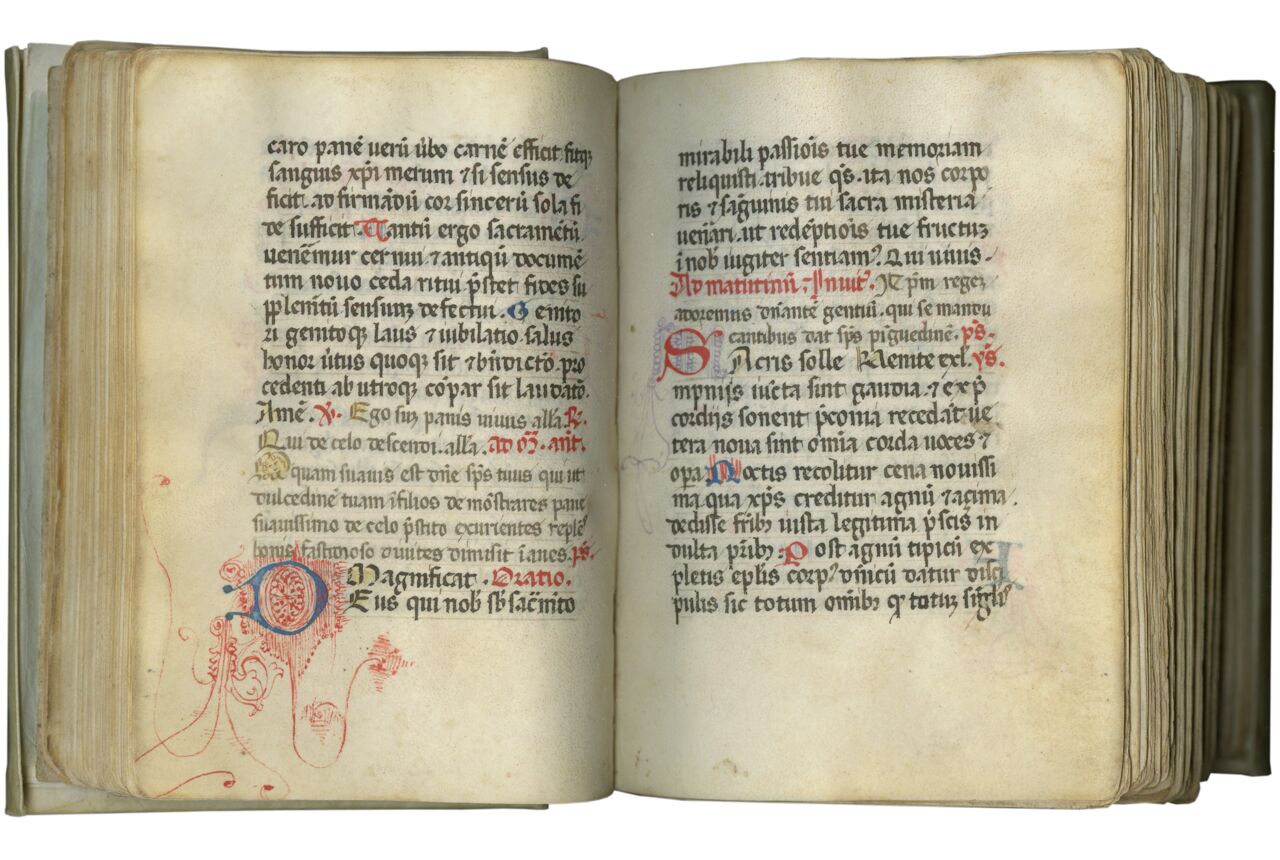 caro panē uerū ūbo carnē efficit fitqꝫ
sanguis xp̄i merum ⁊ si sensus de
ficit. ad firmādū cor sincerū sola fi
de sufficit. Tantū ergo sacramētū
uenēmur cernui ⁊ antiquū documē
tum nouo ceda ritui p̄stet fides su
pplemētū sensuuꝫ defectui. Genito
ri genitoqꝫ laus ⁊ iubilatio salus
honor ūtus quoqꝫ sit ⁊ bn̄dictō. pro
cedenti ab utroqꝫ cōpar sit laudatō.
Amē. V̄. Ego suꝫ panis uiuus alla. R̄.
Qui de celo descendi. alla. ad m̄. ant̄.
O quam suauis est dn̄e sp̄s tuus qui ut
dulcedinē tuam ī filios demōstrares pane
suauissimo de celo p̄stito exurientes reples
bonis fastidioso diuites dimisit īanes. p̄s.
Magnificat. Oratio.
Deus qui nob̄ sb̄ sac̄mēto
mirabili passiōis tue memoriam
reliquisti. tribue q̄s. ita nos corpo
ris ⁊ sāguinis tui sacra misteria
uenērari. ut redēptiōis tue fructuꝫ
ī nob̄ iugiter sentiamꝰ. Qui uiuis.
Ad matutinū. Inuit̄. Xp̄m regeꝫ
adoremus dn̄antē gentiū. qui se mandu
cantibus dat sp̄s pīguedinē. p̄s.
Uenite exl̄. ys.
Sacris solle
mpnijs iūcta sint gaudia. ⁊ ex p̄
cordijs sonent p̄conia recedāt ue
tera noua sint om̄ia corda uoces ⁊
opa. Noctis recolitur cena nouissi
ma. qua xp̄s creditur agnū ⁊ açima
dedisse frīb̄ʒ iuxta legitima p̄scis in
dulta p̄rib̄ʒ. Post agnū tipicū ex
pletis eplis corpꝰ dn̄icū datur disci
pulis sic totum omīb̄ʒ qꝫ totuꝫ singlīs